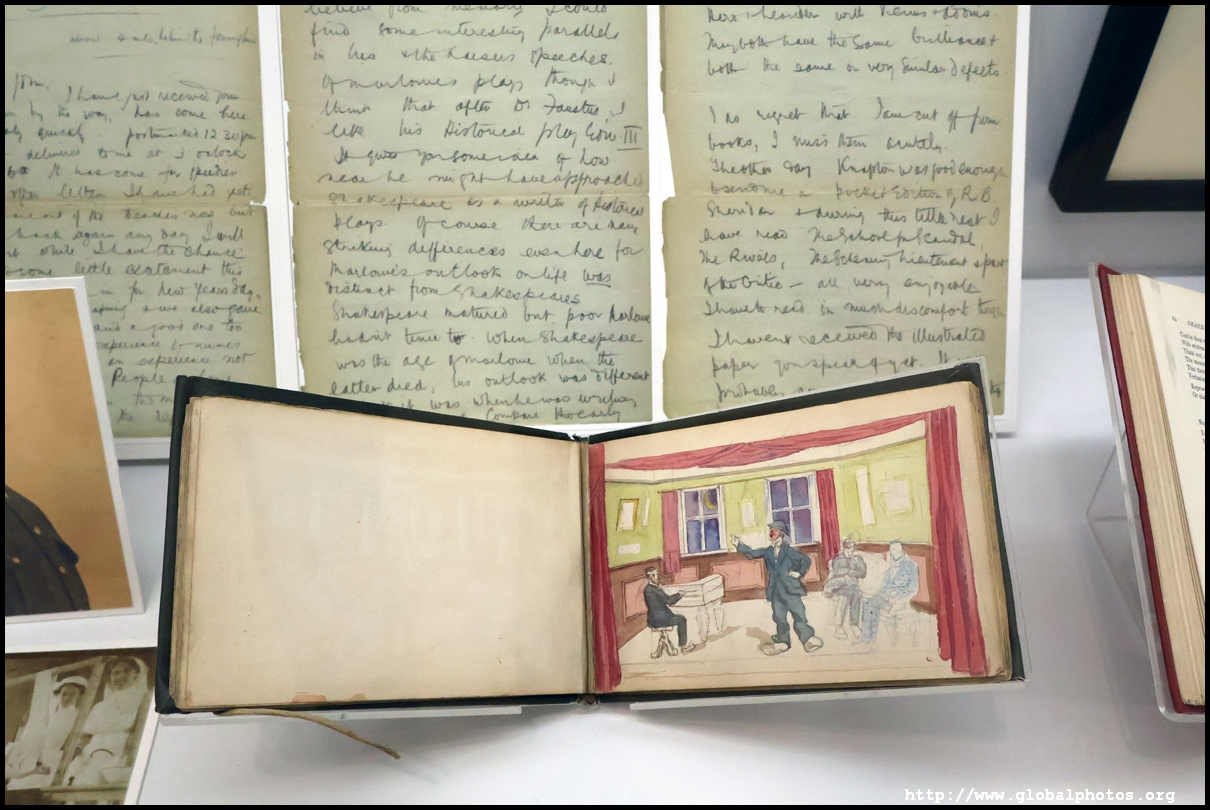 about 4 miles behind the
I have just received your
by the way, has come here
quickly. postmarked 12.30pm
delivered to me at 3 o'clock
It has come far speedier
letter I have had yet.
of the trenches now but
back again any day. I will
while I have the chance
some little excitement this
in for New Years day,
we also gave
and a good one too
experience of nurses
an experience not
People
believe from memory I could
find some interesting parallels
in his & the Kaisers speeches.
Of Marlowe's plays though I
think that after Dr Faustus, I
like his Historical play Edw III
It gives you some idea of how
near he might have approached
Shakespeare as a writer of Historical
plays. Of course there are many
striking differences even here for
Marlowe's outlook on life was
distinct from Shakespeares
Shakespeare matured but poor Marlowe
hadn't time to. When Shakespeare
was the age of Marlowe when the
latter died, his outlook was different
it was when he was writing
Compare
Hero & Leander with Venus & Adonis.
They both have the same brilliance &
both the same or very similar defects.
I do regret that I am cut off from
books, I miss them acutely.
The other day Knapton was good enough
to send me a pocket edition of R B
Sheridan & during this little rest I
have read The School for Scandal,
The Rivals, The Scheming Lieutenant & part
of the Critic — all very enjoyable
I have to read in much discomfort though
I havent received the illustrated
paper you speak of yet. It
probably
http://www.globalphotos.org